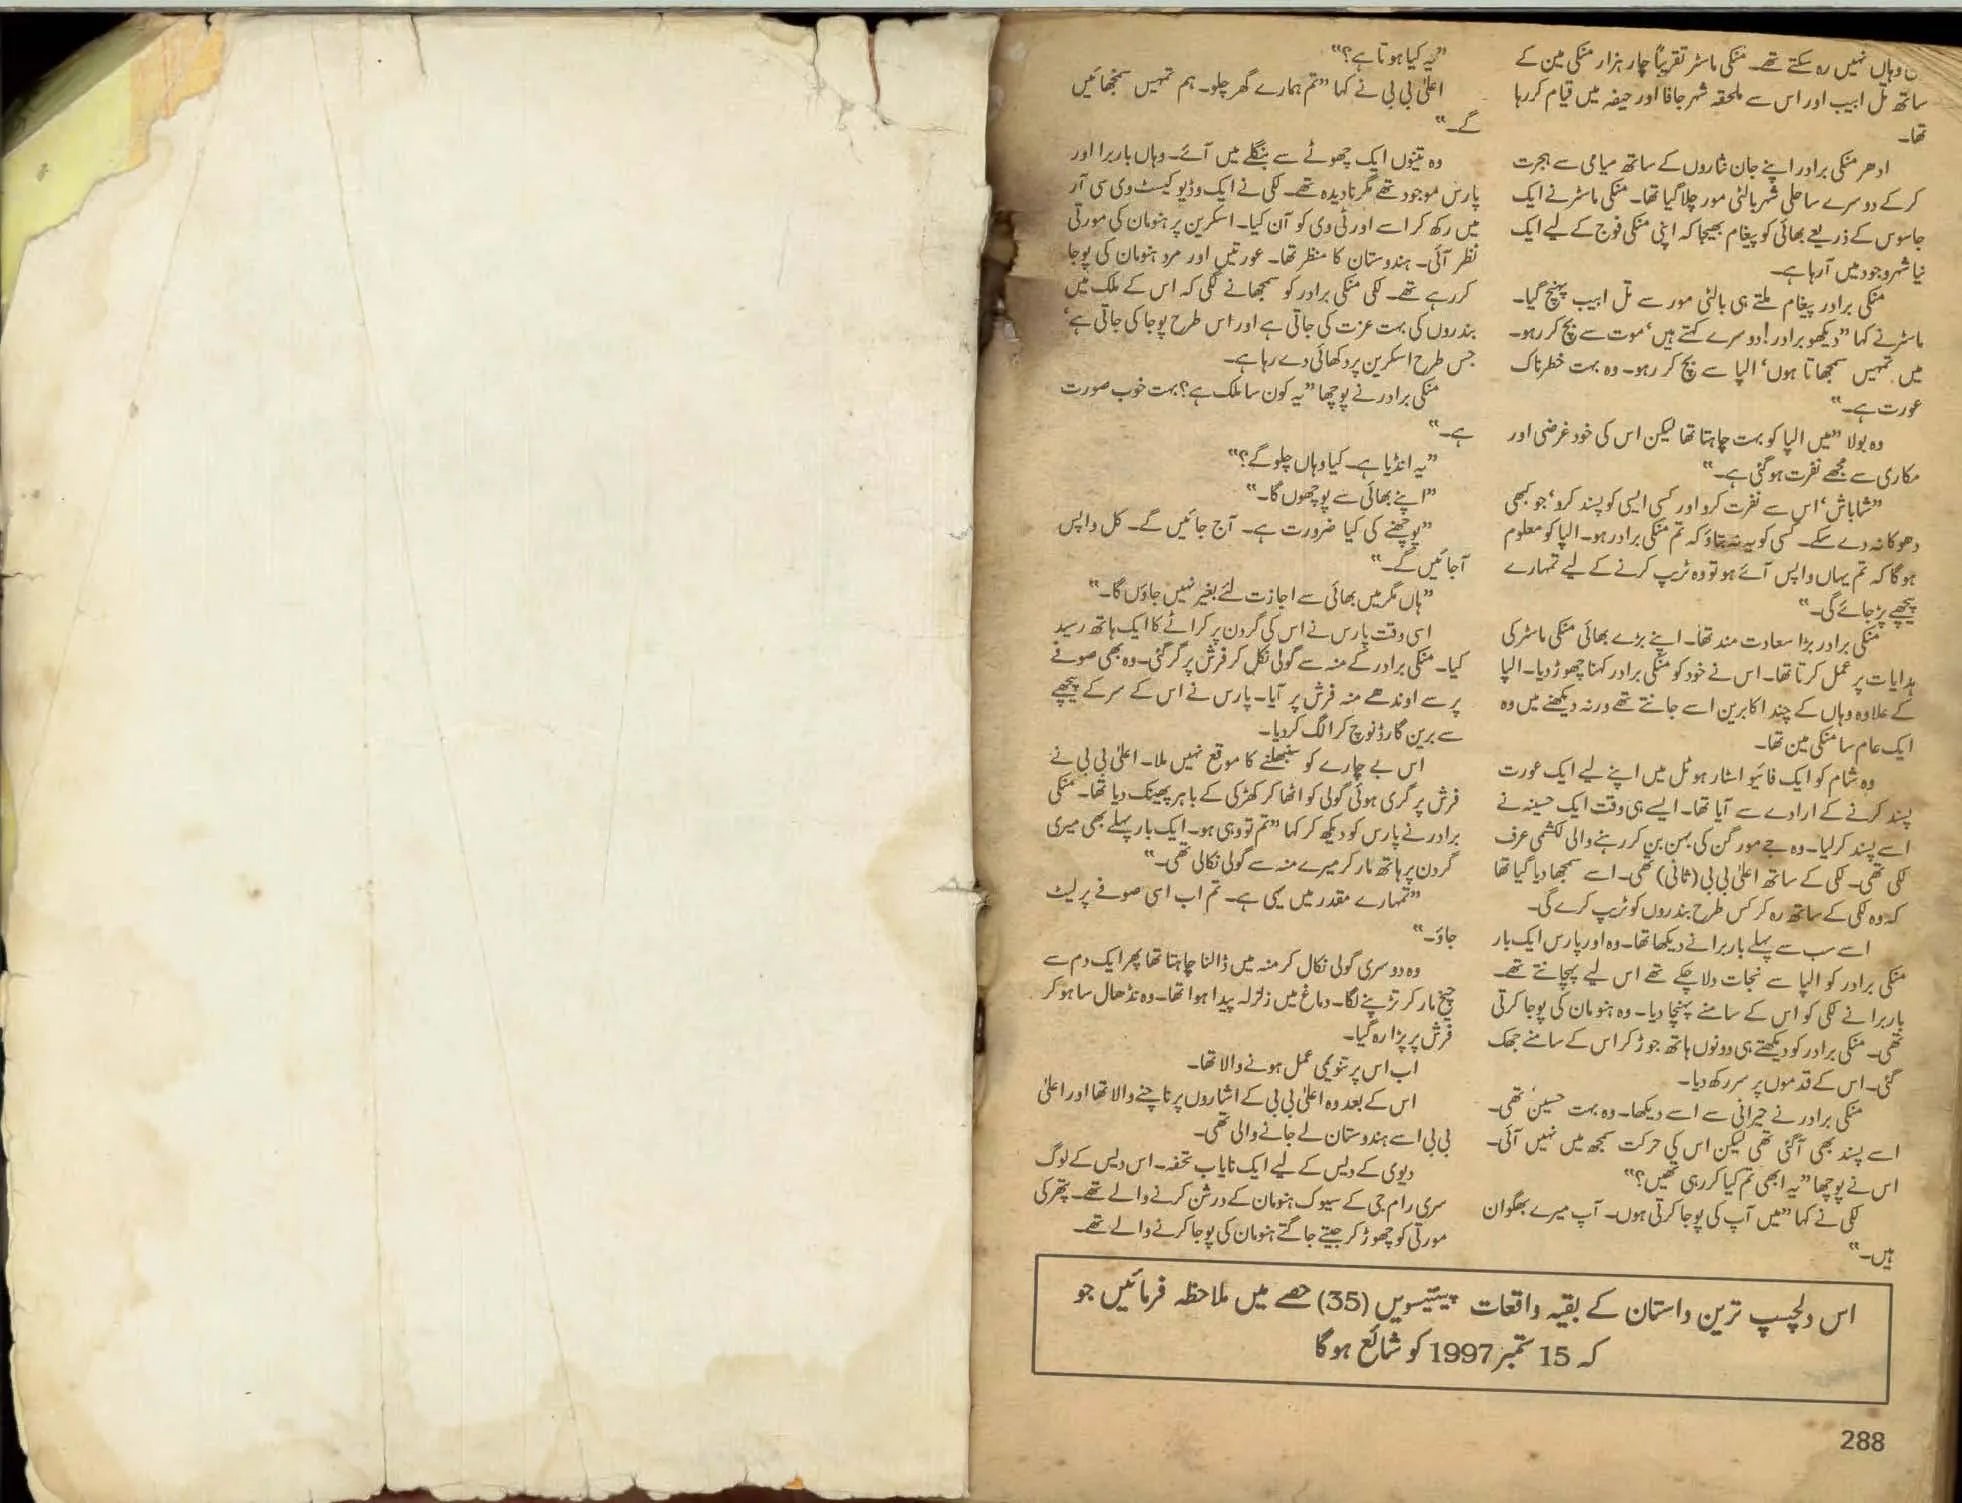 وہاں نہیں رہ سکتے تھے۔ منکی ماسٹر تقریباً چار ہزار منکی مین کے
ساتھ تل ابیب اور اس سے ملحقہ شہر جافا اور حیفہ میں قیام کر رہا
تھا۔
ادھر منکی برادر اپنے جان نثاروں کے ساتھ میامی سے ہجرت
کر کے دوسرے ساحلی شہر بالٹی مور چلا گیا تھا۔ منکی ماسٹر نے ایک
جاسوس کے ذریعے بھائی کو پیغام بھیجا کہ اپنی منکی فوج کے لیے ایک
نیا شہر وجود میں آ رہا ہے۔
منکی برادر پیغام ملتے ہی بالٹی مور سے تل ابیب پہنچ گیا۔
ماسٹر نے کہا ”دیکھو برادر! دوسرے کہتے ہیں‘ موت سے بچ کر رہو۔
میں تمہیں سمجھاتا ہوں‘ الپا سے بچ کر رہو۔ وہ بہت خطرناک
عورت ہے۔“
وہ بولا ”میں الپا کو بہت چاہتا تھا لیکن اس کی خود غرضی اور
مکاری سے مجھے نفرت ہو گئی ہے۔“
”شاباش‘ اس سے نفرت کرو اور کسی ایسی کو پسند کرو‘ جو کبھی
دھوکا نہ دے سکے۔ کسی کو یہ نہ بتاؤ کہ تم منکی برادر ہو۔ الپا کو معلوم
ہو گا کہ تم یہاں واپس آئے ہو تو وہ ٹریپ کرنے کے لیے تمہارے
پیچھے پڑ جائے گی۔“
منکی برادر بڑا سعادت مند تھا۔ اپنے بڑے بھائی منکی ماسٹر کی
ہدایات پر عمل کرتا تھا۔ اس نے خود کو منکی برادر کہنا چھوڑ دیا۔ الپا
کے علاوہ وہاں کے چند اکابرین اسے جانتے تھے ورنہ دیکھنے میں وہ
ایک عام سا منکی مین تھا۔
وہ شام کو ایک فائیو اسٹار ہوٹل میں اپنے لیے ایک عورت
پسند کرنے کے ارادے سے آیا تھا۔ ایسے ہی وقت ایک حسینہ نے
اسے پسند کر لیا۔ وہ جے مورگن کی بہن بن کر رہنے والی لکشمی عرف
لکی تھی۔ لکی کے ساتھ اعلیٰ بی بی (ثانی) تھی۔ اسے سمجھا دیا گیا تھا
کہ وہ لکی کے ساتھ رہ کر کس طرح بندروں کو ٹریپ کرے گی۔
اسے سب سے پہلے باربرا نے دیکھا تھا۔ وہ اور پارس ایک بار
منکی برادر کو الپا سے نجات دلا چکے تھے اس لیے پہچانتے تھے۔
باربرا نے لکی کو اس کے سامنے پہنچا دیا۔ وہ ہنومان کی پوجا کرتی
تھی۔ منکی برادر کو دیکھتے ہی دونوں ہاتھ جوڑ کر اس کے سامنے جھک
گئی۔ اس کے قدموں پر سر رکھ دیا۔
منکی برادر نے حیرانی سے اسے دیکھا۔ وہ بہت حسین تھی۔
اسے پسند بھی آ گئی تھی لیکن اس کی حرکت سمجھ میں نہیں آئی۔
اس نے پوچھا ”یہ ابھی تم کیا کر رہی تھیں؟“
لکی نے کہا ”میں آپ کی پوجا کرتی ہوں۔ آپ میرے بھگوان
ہیں۔“
”یہ کیا ہوتا ہے؟“
اعلیٰ بی بی نے کہا ”تم ہمارے گھر چلو۔ ہم تمہیں سمجھائیں
گے۔“
وہ تینوں ایک چھوٹے سے بنگلے میں آئے۔ وہاں باربرا اور
پارس موجود تھے مگر نادیدہ تھے۔ لکی نے ایک وڈیو کیسٹ وی سی آر
میں رکھ کر اسے اور ٹی وی کو آن کیا۔ اسکرین پر ہنومان کی مورتی
نظر آئی۔ ہندوستان کا منظر تھا۔ عورتیں اور مرد ہنومان کی پوجا
کر رہے تھے۔ لکی منکی برادر کو سمجھانے لگی کہ اس کے ملک میں
بندروں کی بہت عزت کی جاتی ہے اور اس طرح پوجا کی جاتی ہے‘
جس طرح اسکرین پر دکھائی دے رہا ہے۔
منکی برادر نے پوچھا ”یہ کون سا ملک ہے؟ بہت خوب صورت
ہے۔“
”یہ انڈیا ہے۔ کیا وہاں چلو گے؟“
”اپنے بھائی سے پوچھوں گا۔“
”پوچھنے کی کیا ضرورت ہے۔ آج جائیں گے۔ کل واپس
آ جائیں گے۔“
”ہاں مگر میں بھائی سے اجازت لئے بغیر نہیں جاؤں گا۔“
اسی وقت پارس نے اس کی گردن پر کراٹے کا ایک ہاتھ رسید
کیا۔ منکی برادر کے منہ سے گولی نکل کر فرش پر گر گئی۔ وہ بھی صوفے
پر سے اوندھے منہ فرش پر آیا۔ پارس نے اس کے سر کے پیچھے
سے برین گارڈ نوچ کر الگ کر دیا۔
اس بے چارے کو سنبھلنے کا موقع نہیں ملا۔ اعلیٰ بی بی نے
فرش پر گری ہوئی گولی کو اٹھا کر کھڑکی کے باہر پھینک دیا تھا۔ منکی
برادر نے پارس کو دیکھ کر کہا ”تم تو وہی ہو۔ ایک بار پہلے بھی میری
گردن پر ہاتھ مار کر میرے منہ سے گولی نکالی تھی۔“
”تمہارے مقدر میں یہی ہے۔ تم اب اسی صوفے پر لیٹ
جاؤ۔“
وہ دوسری گولی نکال کر منہ میں ڈالنا چاہتا تھا پھر ایک دم سے
چیخ مار کر تڑپنے لگا۔ دماغ میں زلزلہ پیدا ہوا تھا۔ وہ نڈھال سا ہو کر
فرش پر پڑا رہ گیا۔
اب اس پر تنویمی عمل ہونے والا تھا۔
اس کے بعد وہ اعلیٰ بی بی کے اشاروں پر ناچنے والا تھا اور اعلیٰ
بی بی اسے ہندوستان لے جانے والی تھی۔
دیوی کے دیس کے لیے ایک نایاب تحفہ۔ اس دیس کے لوگ
سری رام جی کے سیوک ہنومان کے درشن کرنے والے تھے۔ پتھر کی
مورتی کو چھوڑ کر جیتے جاگتے ہنومان کی پوجا کرنے والے تھے۔
اس دلچسپ ترین داستان کے بقیہ واقعات پینتیسویں (35) حصے میں ملاحظہ فرمائیں جو
کہ 15 ستمبر 1997 کو شائع ہو گا
288